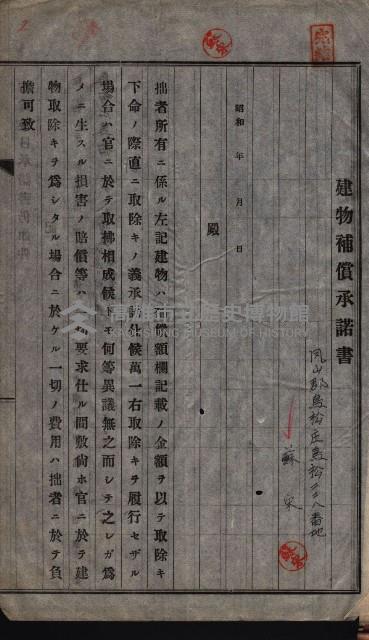 建物補償承諾書
鳳山郡鳥松庄鳥松三三八番地
蘇
昭和 年 月 日
殿
拙者所有ニ係ル左記建物ハ補償額欄記載ノ金額ヲ以テ取除キ
下命ノ際直ニ取除キノ義承諾仕候萬一右取除キヲ履行セザル
場合ハ官ニ於テ取拂相成候トモ何等異議無之而シテ之レガ爲
メニ生スル損害ノ賠償等ハ要求仕ル間敷尙ホ官ニ於テ建
物取除キヲ爲シタル場合ニ於ケル一切ノ費用ハ拙者ニ於テ負
擔可致
高雄市立歷史博物館